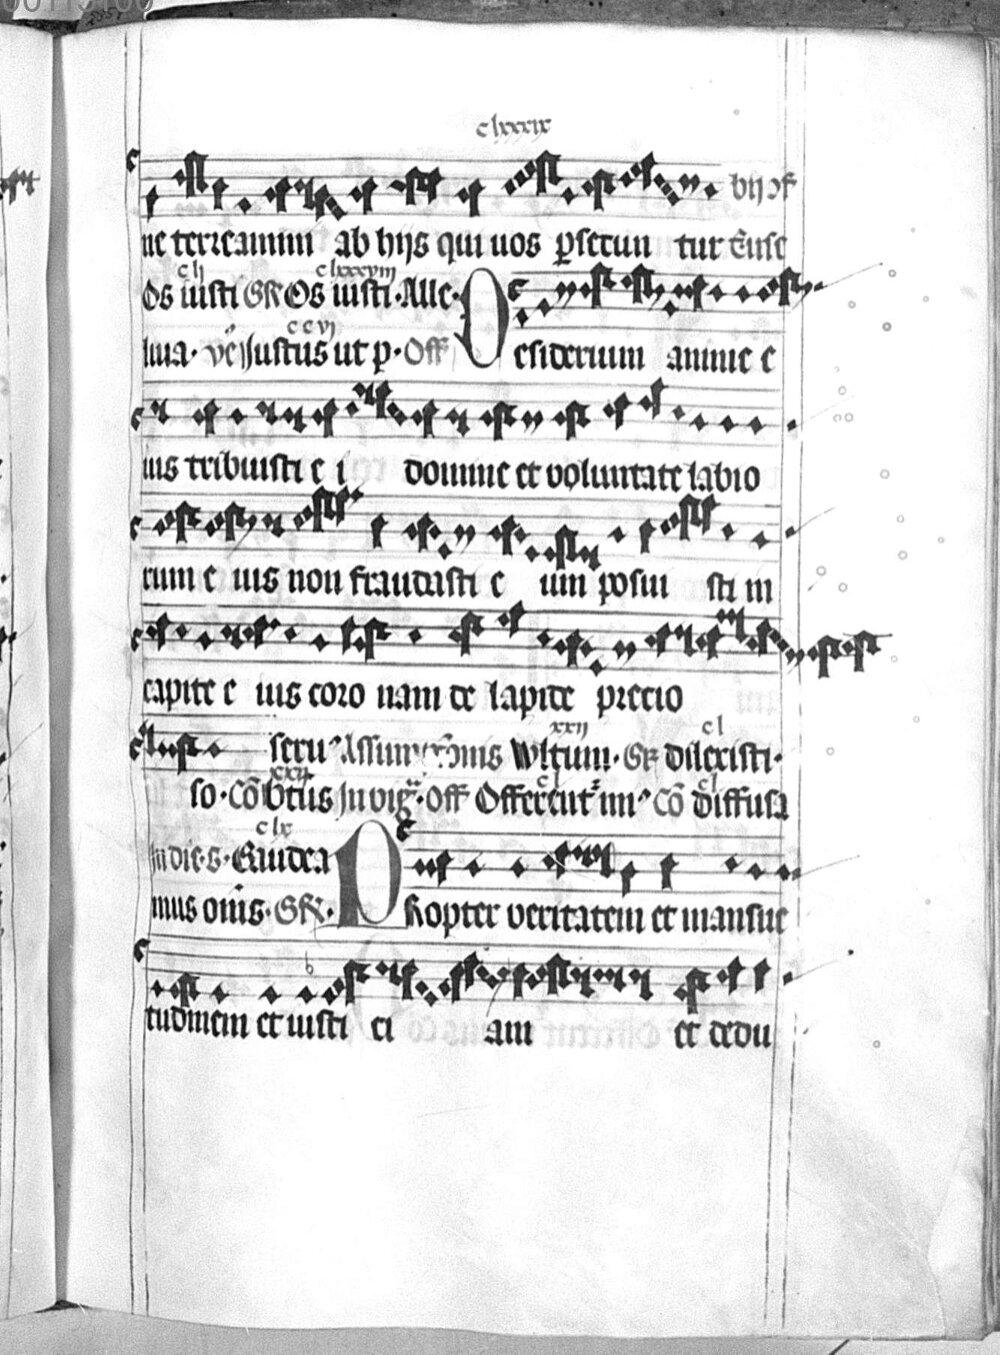 clxxxix
ne terreamini ab hijs qui uos ꝑsecun tur Euse
bij ꝯf
cli clxxxviii
Os iusti GR Os iusti · Alle
ccvi
luia · v̄e Justus ut p · Off Desiderium anime e
ius tribuisti e i domine et voluntate labio
rum e ius non fraudasti e um posui sti in
capite e ius coro nam de lapide precio
xxij cl
seru Assum Wltum · GR dilexisti ·
so · Cō btūs Jn vig · Off Offerent² iii Cō diffusa
clx
Jn die · s · Gaudea
mus om̄s · GR · Propter veritatem et mansue
tudinem et iusti ci am et dedu